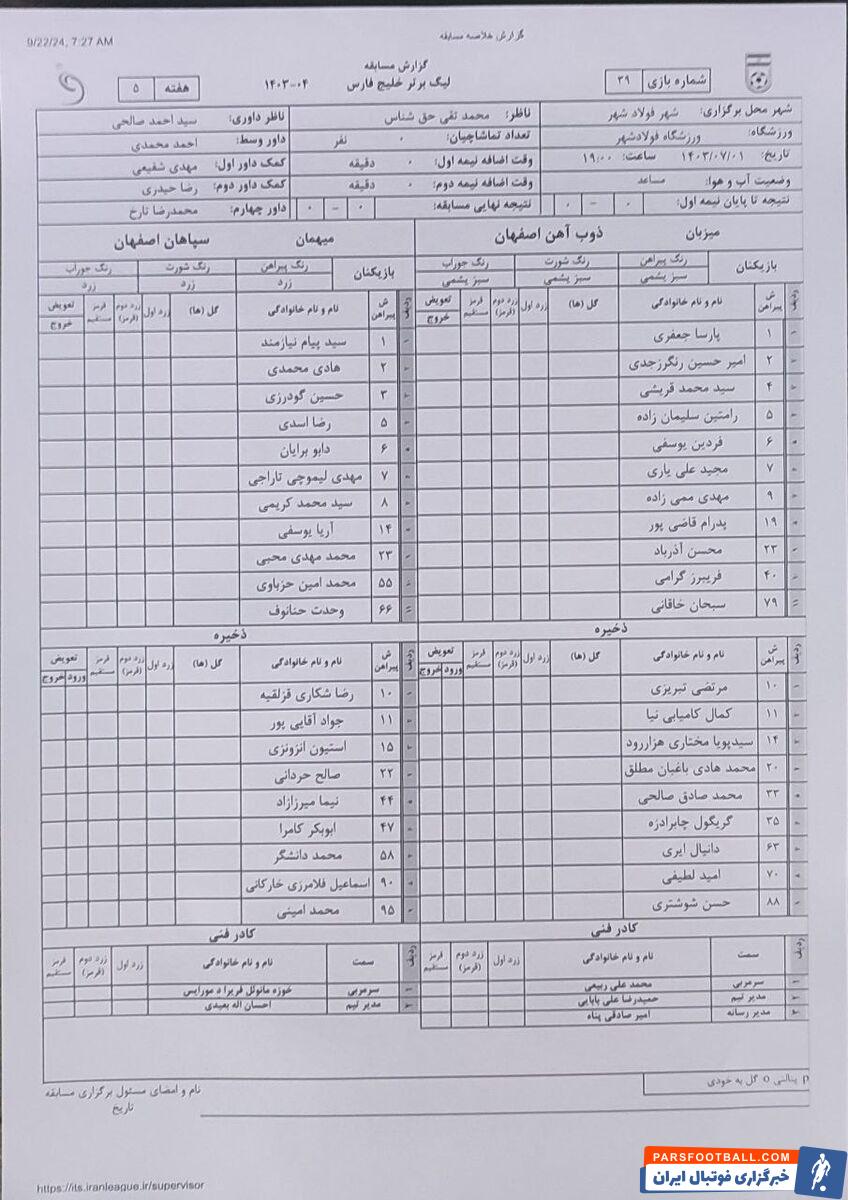 9/22/24, 7:27 AM
گزارش خلاصه مسابقه
گزارش مسابقه
شماره بازی ۳۹
لیگ برتر خلیج فارس ۰۴-۱۴۰۳
هفته ۵
شهر محل برگزاری: شهر فولاد شهر
ناظر: محمد تقی حق شناس
ناظر داوری: سید احمد صالحی
ورزشگاه: ورزشگاه فولادشهر
تعداد تماشاچیان: ۰ نفر
داور وسط: احمد محمدی
تاریخ: ۱۴۰۳/۰۷/۰۱ ساعت: ۱۹:۰۰
وقت اضافه نیمه اول: ۰ دقیقه
کمک داور اول: مهدی شفیعی
وضعیت آب و هوا: مساعد
وقت اضافه نیمه دوم: ۰ دقیقه
کمک داور دوم: رضا حیدری
نتیجه تا پایان نیمه اول: ۰ - ۰
نتیجه نهایی مسابقه: ۰ - ۰
داور چهارم: محمدرضا تارخ
میزبان ذوب آهن اصفهان
بازیکنان
رنگ پیراهن رنگ شورت رنگ جوراب
سبز یشمی سبز یشمی سبز یشمی
ردیف ش پیراهن نام و نام خانوادگی گل (ها) زرد اول زرد دوم (قرمز) قرمز مستقیم تعویض خروج
۱ پارسا جعفری
۲ امیر حسین رنگرزجدی
۴ سید محمد قریشی
۵ رامتین سلیمان زاده
۶ فردین یوسفی
۷ مجید علی یاری
۹ مهدی ممی زاده
۱۹ پدرام قاضی پور
۲۳ محسن آذرباد
۴۰ فریبرز گرامی
۷۹ سبحان خاقانی
ذخیره
ردیف ش پیراهن نام و نام خانوادگی گل (ها) زرد اول زرد دوم (قرمز) قرمز مستقیم تعویض ورود خروج
۱۰ مرتضی تبریزی
۱۱ کمال کامیابی نیا
۱۴ سیدپویا مختاری هزاررود
۲۰ محمد هادی باغبان مطلق
۳۳ محمد صادق صالحی
۳۵ گریگول چابرادزه
۶۳ دانیال ایری
۷۰ امید لطیفی
۸۸ حسن شوشتری
کادر فنی
ردیف سمت نام و نام خانوادگی زرد اول زرد دوم (قرمز) قرمز مستقیم
۱ سرمربی محمد علی ربیعی
۲ مدیر تیم حمیدرضا علی بابایی
۳ مدیر رسانه امیر صادقی پناه
میهمان سپاهان اصفهان
بازیکنان
رنگ پیراهن رنگ شورت رنگ جوراب
زرد زرد زرد
ردیف ش پیراهن نام و نام خانوادگی گل (ها) زرد اول زرد دوم (قرمز) قرمز مستقیم تعویض خروج
۱ سید پیام نیازمند
۲ هادی محمدی
۳ حسین گودرزی
۵ رضا اسدی
۶ دابو برایان
۷ مهدی لیموچی تاراجی
۸ سید محمد کریمی
۱۴ آریا یوسفی
۲۳ محمد مهدی محبی
۵۵ محمد امین حزباوی
۶۶ وحدت حنانوف
ذخیره
ردیف ش پیراهن نام و نام خانوادگی گل (ها) زرد اول زرد دوم (قرمز) قرمز مستقیم تعویض ورود خروج
۱۰ رضا شکاری قزلقیه
۱۱ جواد آقایی پور
۱۵ استیون انزونزی
۲۲ صالح حردانی
۴۴ نیما میرزازاد
۴۷ ابوبکر کامرا
۵۸ محمد دانشگر
۹۰ اسماعیل فلامرزی خارکانی
۹۵ محمد امینی
کادر فنی
ردیف سمت نام و نام خانوادگی زرد اول زرد دوم (قرمز) قرمز مستقیم
۱ سرمربی خوزه مانوئل فریرا د مورایس
۲ مدیر تیم احسان اله بعیدی
p پنالتی o گل به خودی
نام و امضای مسئول برگزاری مسابقه
تاریخ
https://its.iranleague.ir/supervisor
PARSFOOTBALL.COM
خبرگزاری فوتبال ایران